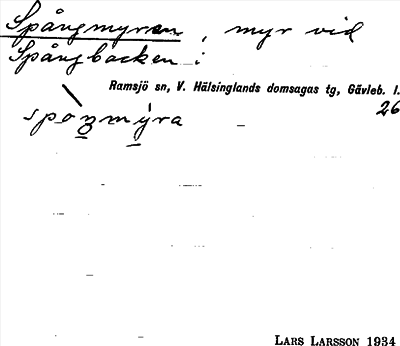 Spångmyren, myr vid
Spångbacken i
Ramsjö sn, V. Hälsinglands domsagas tg, Gävleb. l.
26
spoŋmýra
LARS LARSSON 1934